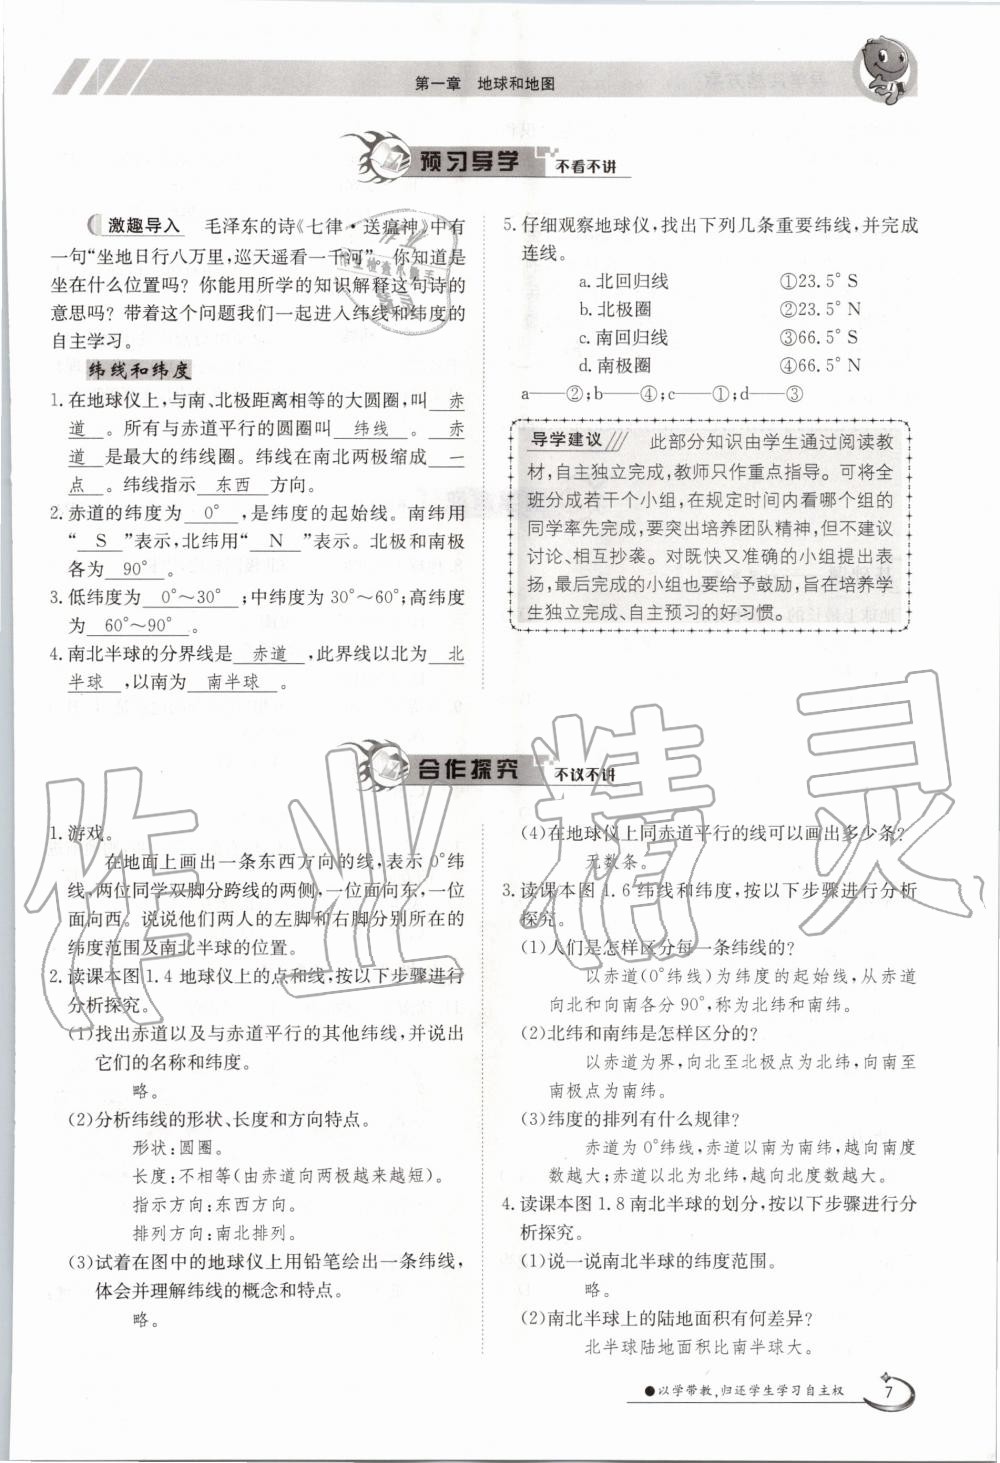 第一章 地球和地图
预习导学 不看不讲
激趣导入 毛泽东的诗《七律·送瘟神》中有
一句“坐地日行八万里,巡天遥看一千河” 你知道是
坐在什么位置吗? 你能用所学的知识解释这句诗的
意思吗? 带着这个问题我们一起进入纬线和纬度的
自主学习。
纬线和纬度
1.在地球仪上,与南、北极距离相等的大圆圈,叫 赤
道 。所有与赤道平行的圆圈叫 纬线 。 赤
道 是最大的纬线圈。纬线在南北两极缩成 一
点 。纬线指示 东西 方向。
2.赤道的纬度为 0° ,是纬度的起始线。南纬用
“ S ”表示,北纬用“ N ”表示。北极和南极
各为 90° 。
3.低纬度为 0°～30° ;中纬度为 30°～60°;高纬度
为 60°～90° 。
4.南北半球的分界线是 赤道 ,此界线以北为 北
半球 ,以南为 南半球 。
5.仔细观察地球仪,找出下列几条重要纬线,并完成
连线。
a.北回归线 ①23.5° S
b.北极圈 ②23.5° N
c.南回归线 ③66.5° S
d.南极圈 ④66.5° N
a——②;b——④;c——①;d——③
导学建议 此部分知识由学生通过阅读教
材,自主独立完成,教师只作重点指导。可将全
班分成若干个小组,在规定时间内看哪个组的
同学率先完成,要突出培养团队精神,但不建议
讨论、相互抄袭。对既快又准确的小组提出表
扬,最后完成的小组也要给予鼓励,旨在培养学
生独立完成、自主预习的好习惯。
合作探究 不议不讲
1.游戏。
在地面上画出一条东西方向的线,表示 0°纬
线,两位同学双脚分跨线的两侧,一位面向东,一位
面向西。说说他们两人的左脚和右脚分别所在的
纬度范围及南北半球的位置。
2.读课本图 1.4 地球仪上的点和线,按以下步骤进行
分析探究。
(1)找出赤道以及与赤道平行的其他纬线,并说出
它们的名称和纬度。
略。
(2)分析纬线的形状、长度和方向特点。
形状:圆圈。
长度:不相等(由赤道向两极越来越短)。
指示方向:东西方向。
排列方向:南北排列。
(3)试着在图中的地球仪上用铅笔绘出一条纬线,
体会并理解纬线的概念和特点。
略。
(4)在地球仪上同赤道平行的线可以画出多少条?
无数条。
3.读课本图 1.6 纬线和纬度,按以下步骤进行分析
探究。
(1)人们是怎样区分每一条纬线的?
以赤道(0°纬线)为纬度的起始线,从赤道
向北和向南各分 90°,称为北纬和南纬。
(2)北纬和南纬是怎样区分的?
以赤道为界,向北至北极点为北纬,向南至
南极点为南纬。
(3)纬度的排列有什么规律?
赤道为 0°纬线,赤道以南为南纬,越向南度
数越大;赤道以北为北纬,越向北度数越大。
4.读课本图 1.8 南北半球的划分,按以下步骤进行分
析探究。
(1)说一说南北半球的纬度范围。
略。
(2)南北半球上的陆地面积有何差异?
北半球陆地面积比南半球大。
●以学带教,归还学生学习自主权 7
作业精灵